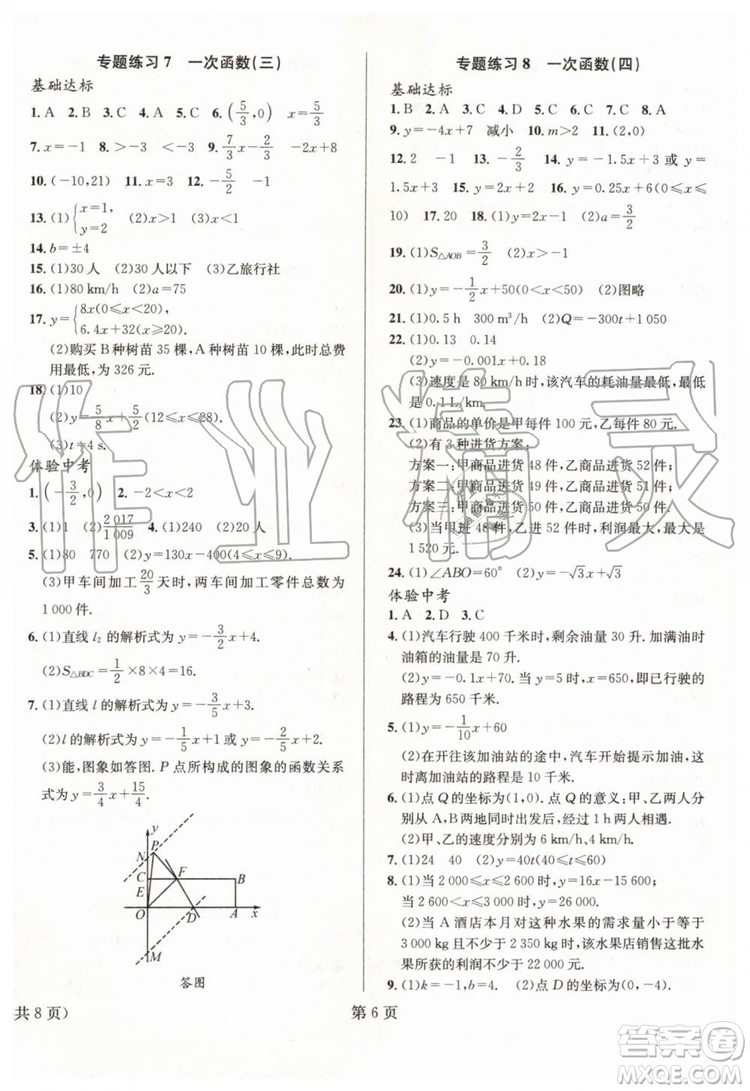 专题练习7 一次函数(三)
基础达标
1. A 2. B 3. C 4. A 5. C 6. (5/3,0)
7. x=-1 8. >-3 <-3 9. 7/3 2/3 10
10. (-10,21) 11. x>3 12. -5/2 -1
13. (1){x=1, y=2 (2)x>1 (3)x<1
14. b=±4
15. (1)30 人 (2)30 人以下 (3)乙旅行社
16. (1)80 km/h (2)a=75
17. y={8x(0≤x≤20), 6.4x+32(x≥20)
(2)购买 B 种树苗 35 棵,A 种树苗 10 棵,此时总费
用最低,为 326 元.
18. (1)10
(2)y=5/8x+5/2(12≤x≤28).
(3)t=4 s.
体验中考
1. (-3/2,0) 2. -2<x<2
3. (1)1 (2)2 017/1 009 4. (1)240 (2)20
5. (1)80 770 (2)y=130x-400(4≤x≤9).
(3)甲车间加工20/3天时,两车间加工零件总数为
1 000 件.
6. (1)直线 l₂ 的解析式为 y=-3/2x+4
(2)S△BDC=1/2×8×4=16.
7. (1)直线 l 的解析式为 y=-3/5x+3
(2)l 的解析式为 y=-2/5x+2 或 y=-8/5x+8
(3)能,图象如答图. P 点所构成的图象的函数关系
式为 y=3/4x+15/4
y
P
N
C F B
E
O D A x
M
答图
共 8 页)
专题练习8 一次函数(四)
基础达标
1. B 2. A 3. C 4. D 5. C 6. C 7. C 8. A
9. y=-4x+7 减小 10. m>2 11. (2,0)
12. 2 -1 13. -2/3 14. y=-1.5x+3 或 y=
1.5x+3 15. y=2x+2 16. y=0.25x+6(0≤x≤
10) 17. 20 18. (1)y=2x-1 (2)a=3/2
19. (1)S△AOB=3/2 (2)x>-1
20. (1)y=-1/2x+50 (2)图略
21. (1)0.5 h 300 m³ (2)Q=-300t+1 050
22. (1)0.13 0.14
(2)y=-0.001x+0.18
(3)速度是 80 km/h 时,该汽车的耗油量最低,最低
是 0.1 L/km.
23. (1)商品的单价是甲每件 100 元,乙每件 80 元.
(2)有 3 种进货方案:
方案一:甲商品进货 48 件,乙商品进货 52 件;
方案二:甲商品进货 49 件,乙商品进货 51 件;
方案三:甲商品进货 50 件,乙商品进货 50 件.
(3)当甲进 48 件,乙进 52 件时,利润最大,最大是
1 520 元.
24. (1)∠ABO=60° (2)y=-√3x+√3
体验中考
1. A 2. D 3. C
4. (1)汽车行驶 400 千米时,剩余油量 30 升. 加满油时
油箱的油量是 70 升.
(2)y=-0.1x+70. 当 y=5 时,x=650,即已行驶的
路程为 650 千米.
5. (1)y=-1/10x+60
(2)在开往该加油站的途中,汽车开始提示加油时离
离加油站的路程是 10 千米.
6. (1)点 Q 的坐标为(1,0). 点 Q 的意义:甲、乙两人分别从 A、B 两地同时出发后,经过 1 h 两人相遇.
(2)甲、乙的速度分别为 6 km/h、4 km/h.
7. (1)24 40 (2)y=40t(40≤t≤60)
8. (1)当 2 000≤x≤2 600 时,y=18x-31 200;当
2 600<x≤3 000 时,y=15 600.
(2)当 A 酒店本月对这种水果的需求量小于等于
3 000 kg 且不少于 2 350 kg 时,该水果店销售这批水
果所获的利润不少于 22 000 元.
9. (1)k=-1/2,b=4. (2)点 D 的坐标为(0,-4).
第 6 页
作业精灵
答案圈
MXQE.COM